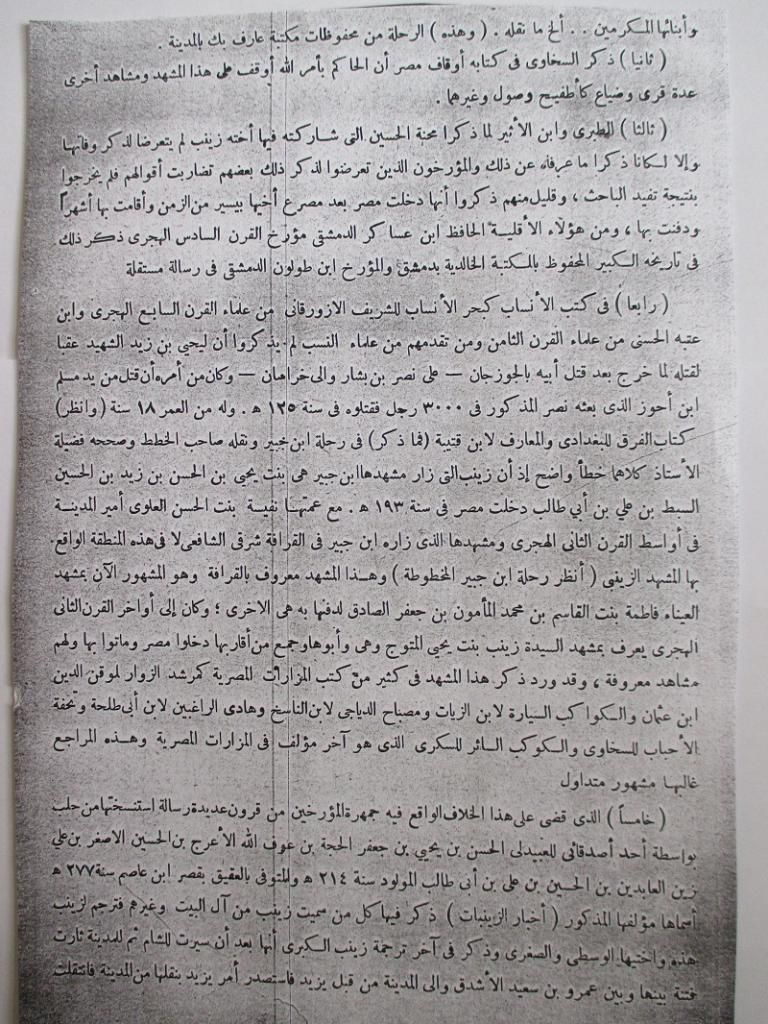 وأبنائها المكرمين . . الخ ما نقله . ( وهذه ) الرحلة من محفوظات مكتبة عارف بك بالمدينة .
( ثانيا ) ذكر السخاوى فى كتابه أوقاف مصر أن الحاكم بأمر الله أوقف على هذا المشهد ومشاهد أخرى
عدة قرى وضياع كأطفيح وصول وغيرهما .
( ثالثا ) الطبرى وابن الأثير لما ذكرا محنة الحسين التى شاركته فيها أخته زينب لم يتعرضا لذكر وفاتها
وإلا لكانا ذكرا ما عرفاه عن ذلك والمؤرخون الذين تعرضوا لذكر ذلك بعضهم تضاربت أقوالهم فلم يخرجوا
بنتيجة تفيد الباحث ، وقليل منهم ذكروا أنها دخلت مصر بعد مصرع أخيها بيسير من الزمن وأقامت بها أشهراً
ودفنت بها ، ومن هؤلاء الأقلية الحافظ ابن عساكر الدمشقى مؤرخ القرن السادس الهجرى ذكر ذلك
فى تاريخه الكبير المحفوظ بالمكتبة الخالدية بدمشق والمؤرخ ابن طولون الدمشقى فى رسالة مستقلة
( رابعا ) فى كتب الأنساب كبحر الأنساب للشريف الازورقانى من علماء القرن السابع الهجرى وابن
عتبه الحسنى من علماء القرن الثامن ومن تقدمهم من علماء النسب لم يذكروا أن ليحي بن زيد الشهيد عقبا
لقتله لما خرج بعد قتل أبيه بالجوزجان — على نصر بن بشار والى خراسان — وكان من أمره أن قتل من يد مسلم
ابن أحوز الذى بعثه نصر المذكور فى ٣٠٠٠ رجل فقتلوه فى سنة ١٢٥ ه . وله من العمر ١٨ سنة ( وانظر )
كتاب الفرق للبغدادى والمعارف لابن قتيبة ( فما ذكر ) فى رحلة ابن جبير ونقله صاحب الخطط وصححه فضيلة
الأستاذ كلاهما خطأ واضح إذ أن زينب التى زار مشهدها ابن جبير هى بنت يحيى بن الحسن بن زيد بن الحسين
السبط بن علي بن أبي طالب دخلت مصر فى سنة ١٩٣ ه . مع عمتها نفيسة بنت الحسن العلوى أمير المدينة
فى أواسط القرن الثانى الهجرى ومشهدها الذى زاره ابن جبير فى القرافة شرقى الشافعى لا فى هذه المنطقة الواقع
بها المشهد الزينبى ( أنظر رحلة ابن جبير المخطوطة ) وهذا المشهد معروف بالقرافة وهو المشهور الآن بمشهد
العيناء فاطمة بنت القاسم بن محمد المأمون بن جعفر الصادق لدفنها به هى الاخرى ؛ وكان إلى أواخر القرن الثانى
الهجرى يعرف بمشهد السيدة زينب بنت يحيى المتوج وهى وأبوها وجمع من أقاربها دخلوا مصر وماتوا بها ولهم
مشاهد معروفة ، وقد ورد ذكر هذا المشهد فى كثير من كتب المزارات المصرية كمرشد الزوار لموفق الدين
ابن عثمان والكواكب السيارة لابن الزيات ومصباح الدياجى لابن الناسخ وهادى الراغبين لابن أبى طلحة وتحفة
الأحباب للسخاوى والكوكب السائر للسكرى الذى هو آخر مؤلف فى المزارات المصرية وهذه المراجع
غالبها مشهور متداول
( خامساً ) الذى قضى على هذا الخلاف الواقع فيه جمهرة المؤرخين من قرون عديدة رسالة استنسختها من حلب
بواسطة أحد أصدقائى للعبيدلى الحسن بن يحيي بن جعفر الحجة بن عوف الله الأعرج بن الحسين الاصغر بن علي
زين العابدين بن الحسين بن على بن أبى طالب المولود سنة ٢١٤ ه والمتوفى بالعقيق بقصر ابن عاصم سنة ٢٧٧ ه
أسماها مؤلفها المذكور ( أخبار الزينبات ) ذكر فيها كل من سميت زينب من آل البيت وغيرهم فترجم لزينب
هذه واختيها الوسطى والصغرى وذكر فى آخر ترجمة زينب الكبرى أنها بعد أن سيرت للشام ثم للمدينة ثارت
فتنة بينها وبين عمرو بن سعيد الأشدق والى المدينة من قبل يزيد فاستصدر أمر يزيد بنقلها من المدينة فانتقلت